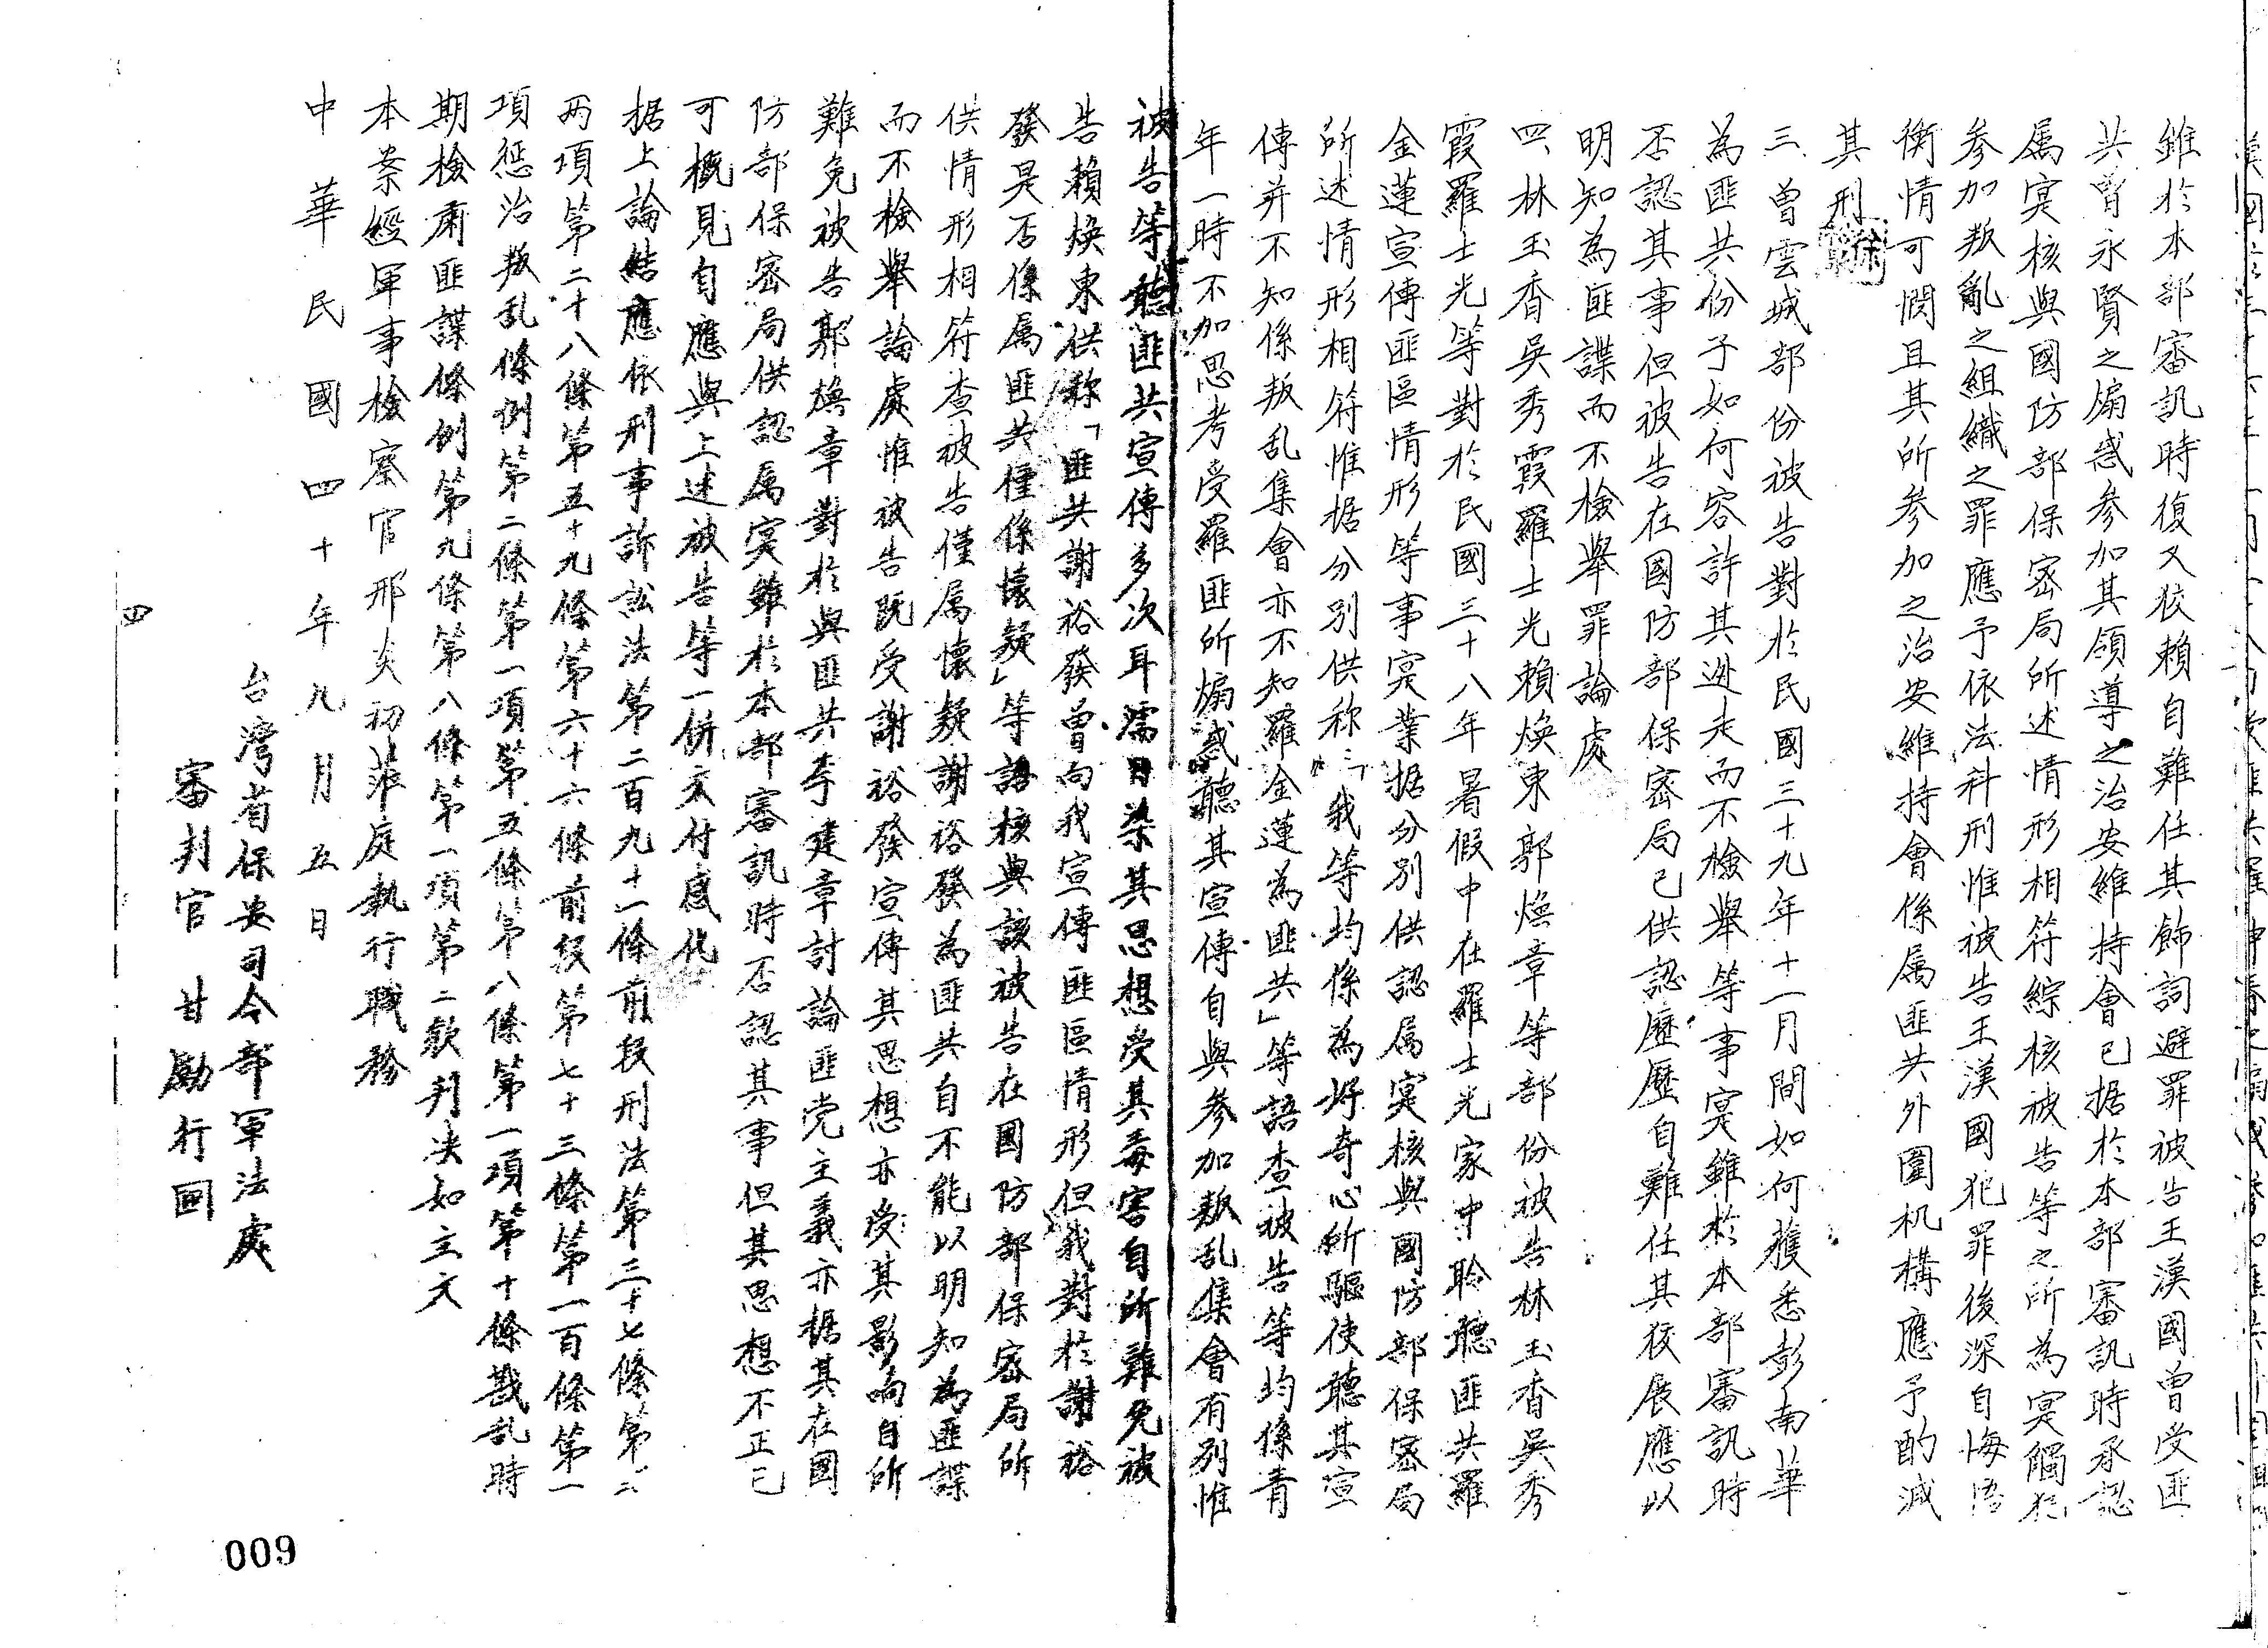 雖於本部審訊時復又狡賴自難任其飾詞避罪被告王漢國曾受匪
共曾永賢之煽惑參加其領導之治安維持會已据於本部審訊時承認
属实核與國防部保密局所述情形相符綜核被告等之所為实觸犯
参加叛亂之組織之罪應予依法科刑惟被告王漢國犯罪後深自悔悟
衡情可憫且其所参加之治安維持會係属匪共外圍机構應予酌減
其刑
三、曾雲城部份被告對於民國三十九年十一月間如何獲悉彭南華
為匪共份子如何容許其逃走而不檢舉等事实雖於本部審訊時
否認其事但被告在國防部保密局已供認歷歷自難任其狡展應以
明知為匪諜而不檢舉罪論處
四、林玉香吳秀霞羅士光賴煥東郭煥章等部份被告林玉香吳秀
霞羅士光等對於民國三十八年暑假中在羅士光家中聆聽匪共羅
金蓮宣傳匪區情形等事实業据分別供認属实核與國防部保密局
所述情形相符惟据分別供称：「我等均係為好奇心所驅使聽其宣
傳并不知係叛乱集會亦不知羅金蓮為匪共」等語查被告等均係青
年一時不加思考受羅匪所煽惑聽其宣傳自與參加叛乱集會有別惟
被告等聽匪共宣傳多次耳濡目染其思想受其毒害自所難免被
告賴煥東供称「匪共謝裕發曾向我宣傳匪區情形但我對於謝裕
發是否係属匪共僅係懷疑」等語核與該被告在國防部保密局所
供情形相符查被告僅属懷疑謝裕發為匪共自不能以明知為匪諜
而不檢舉論處惟被告既受謝裕發宣傳其思想亦受其影响自所
難免被告郭煥章對於與匪共李建章討論匪党主義亦据其在國
防部保密局供認属实雖於本部審訊時否認其事但其思想不正已
可概見自應與上述被告等一併交付感化
据上論結應依刑事訴訟法第二百九十一條前段刑法第三十七條第二
兩項第二十八條第五十九條第六十六條前段第七十三條第一百條第一
項惩治叛乱條例第二條第一項第五條第八條第一項第十條戡乱時
期檢肅匪諜條例第九條第八條第一項第二款判决如主文
本案經軍事檢察官邢炎初蒞庭執行職務
中華民國四十年九月五日
台灣省保安司令部軍法處
審判官 甘勵行回
四
009